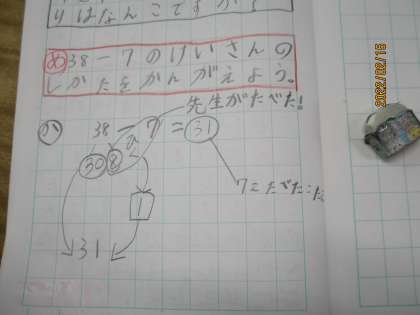 りはなんこですか?
め 38-7のけいさんの
しかたをかんがえよう。
先生がたべた!
38-7=31
ひく
30 8
1
31
7こたべたこた
2022/02/15